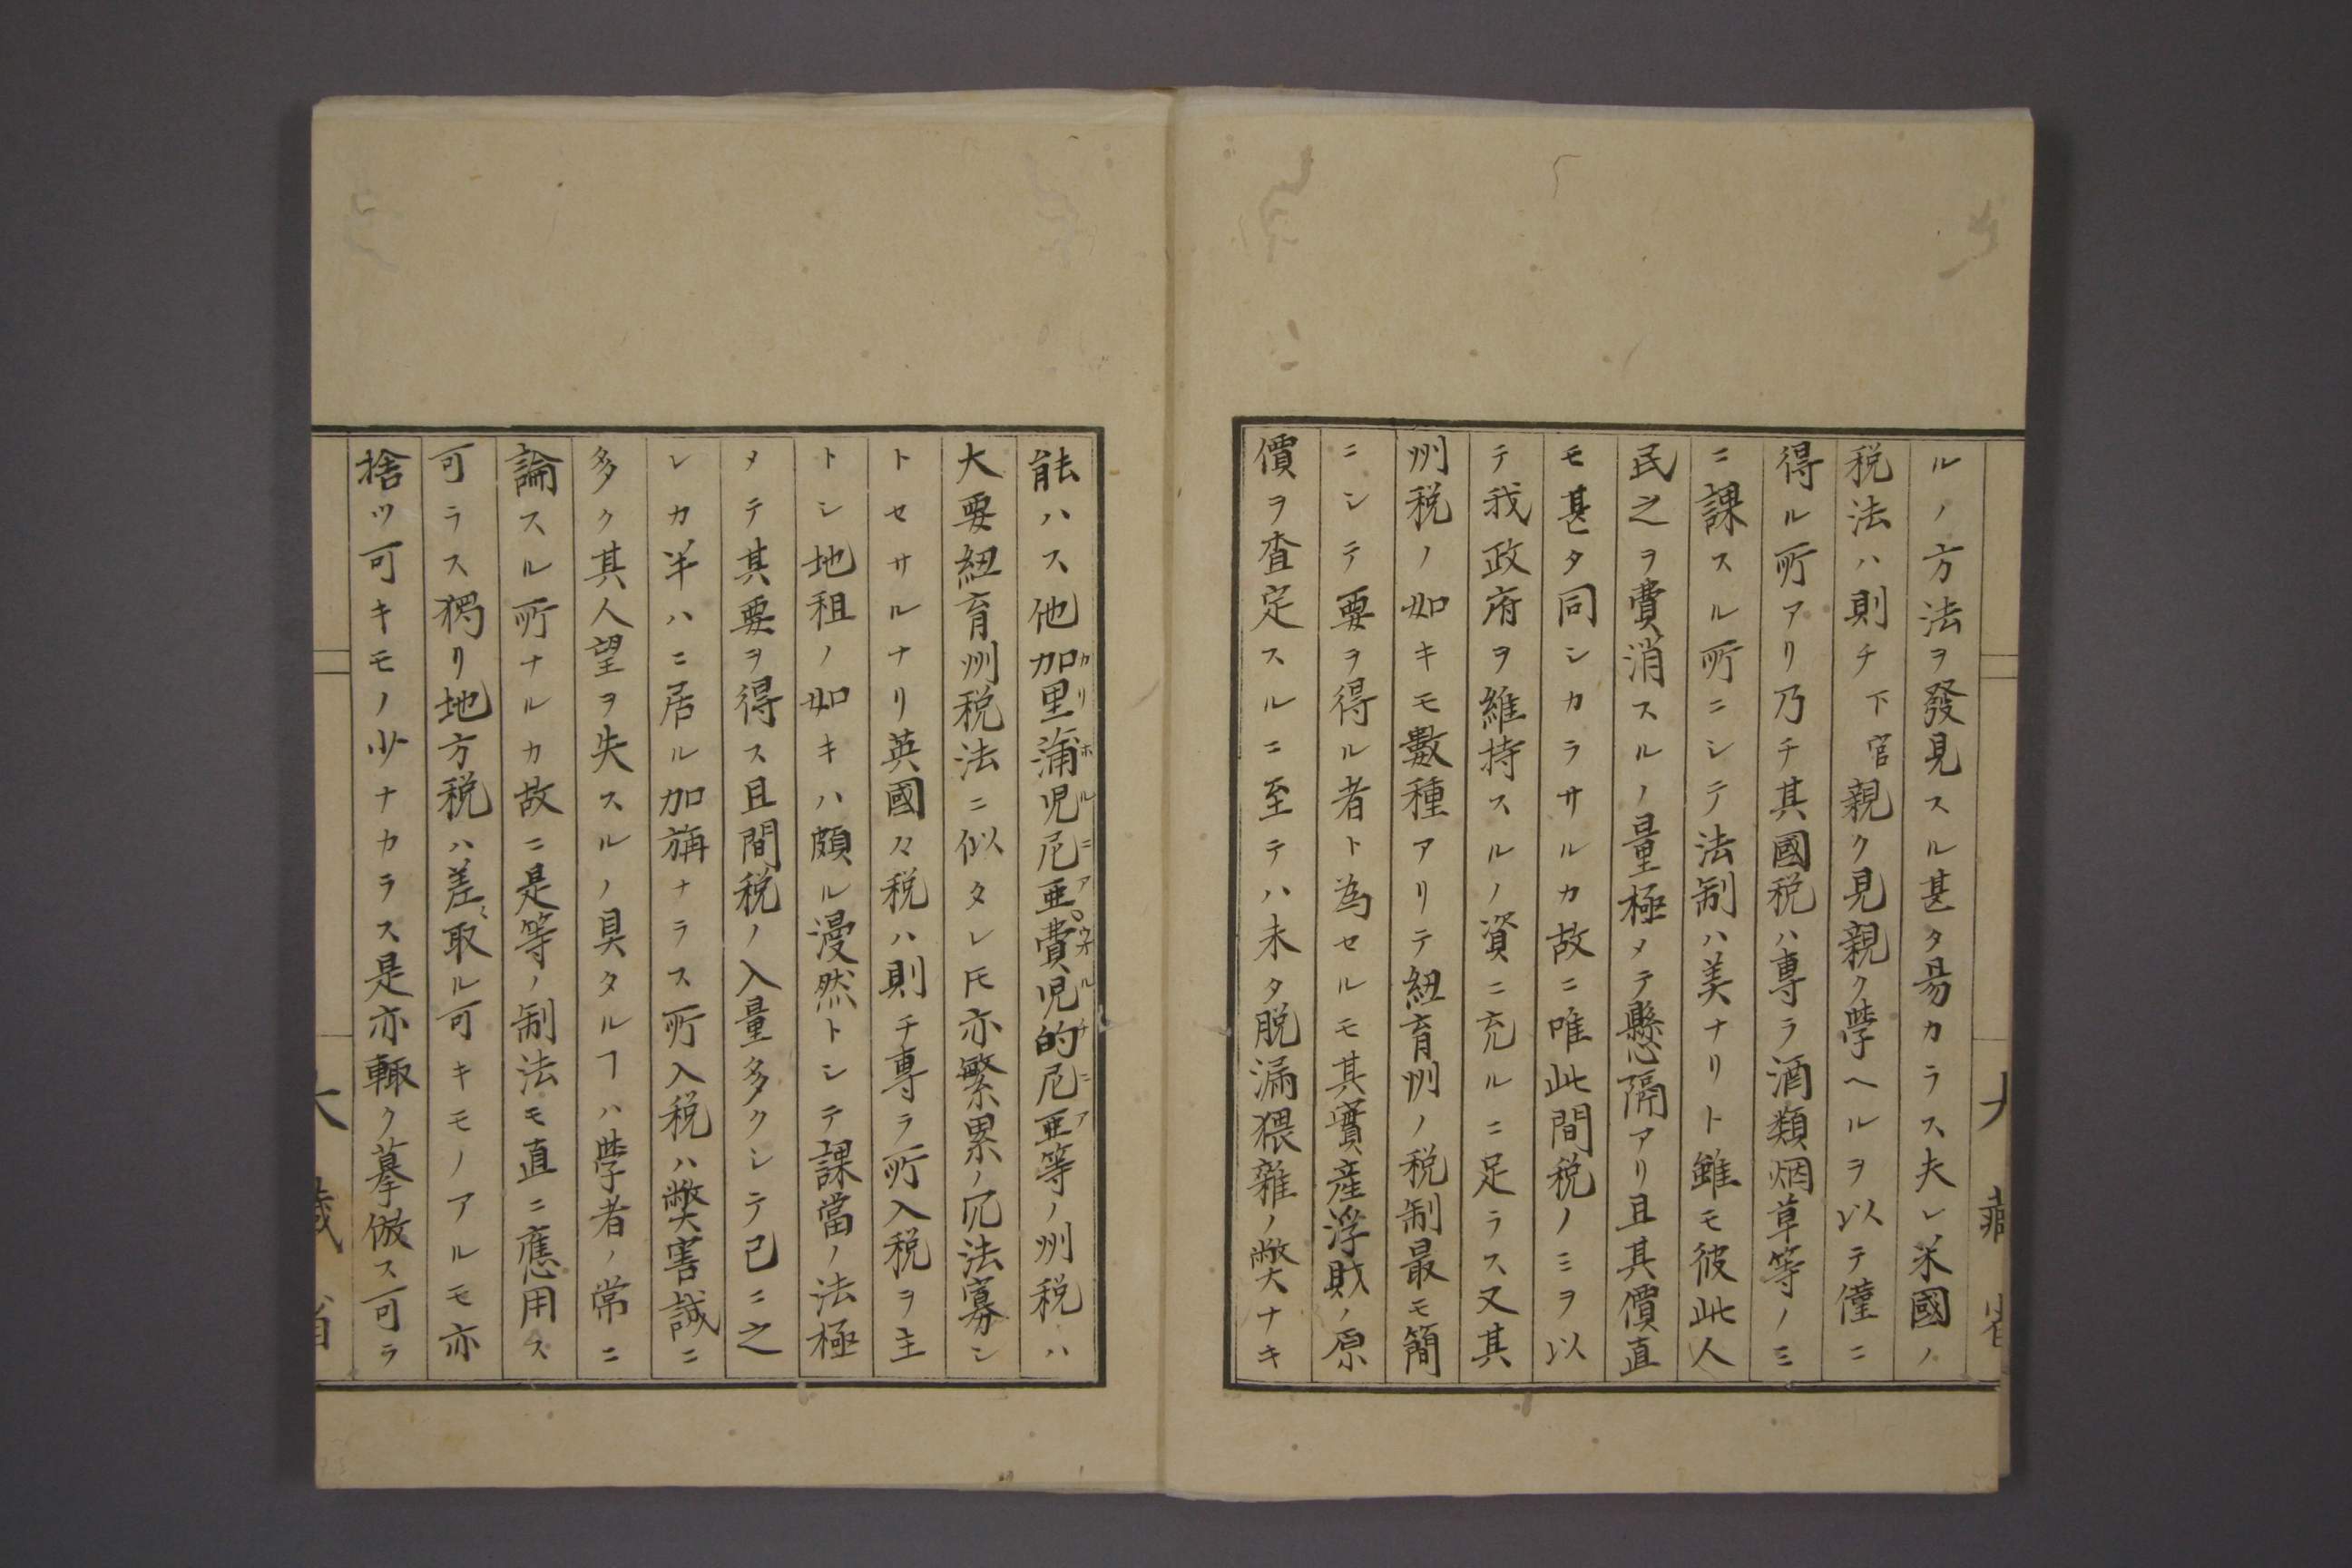 ルノ方法ヲ發見スル甚タ易カラス夫レ米國ノ
税法ハ則チ下官親ク見親ク學ヘルヲ以テ僅ニ
得ル所アリ乃チ其國税ハ專ラ酒類烟草等ノミ
ニ課スル所ニシテ法制ハ美ナリト雖モ彼此人
民之ヲ費消スルノ量極メテ懸隔アリ且其價直
モ甚タ同シカラサルカ故ニ唯此間税ノミヲ以
テ我政府ヲ維持スルノ資ニ充ルニ足ラス又其
州税ノ如キモ數種アリテ紐育州ノ税制最モ簡
ニシテ要ヲ得ル者ト為セルモ其實産浮財ノ原
價ヲ査定スルニ至テハ未タ脱漏猥雜ノ弊ナキ
能ハス他加里蒲児尼亜費児的尼亜等ノ州税ハ
大要紐育州税法ニ似タレ𪜈亦繁累ノ冗法寡シ
トセサルナリ英國々税ハ則チ專ラ所入税ヲ主
トシ地租ノ如キハ頗ル漫然トシテ課當ノ法極
メテ其要ヲ得ス且間税ノ入量多クシテ已ニ之
レカ半ハニ居ル加旃ナラス所入税ハ弊害誠ニ
多ク其人望ヲ失スルノ具タルヿハ學者ノ常ニ
論スル所ナルカ故ニ是等ノ制法モ直ニ應用ス
可ラス獨リ地方税ハ差〻取ル可キモノアルモ亦
捨ツ可キモノ少ナカラス是亦輙ク摹倣ス可ラ
大藏省